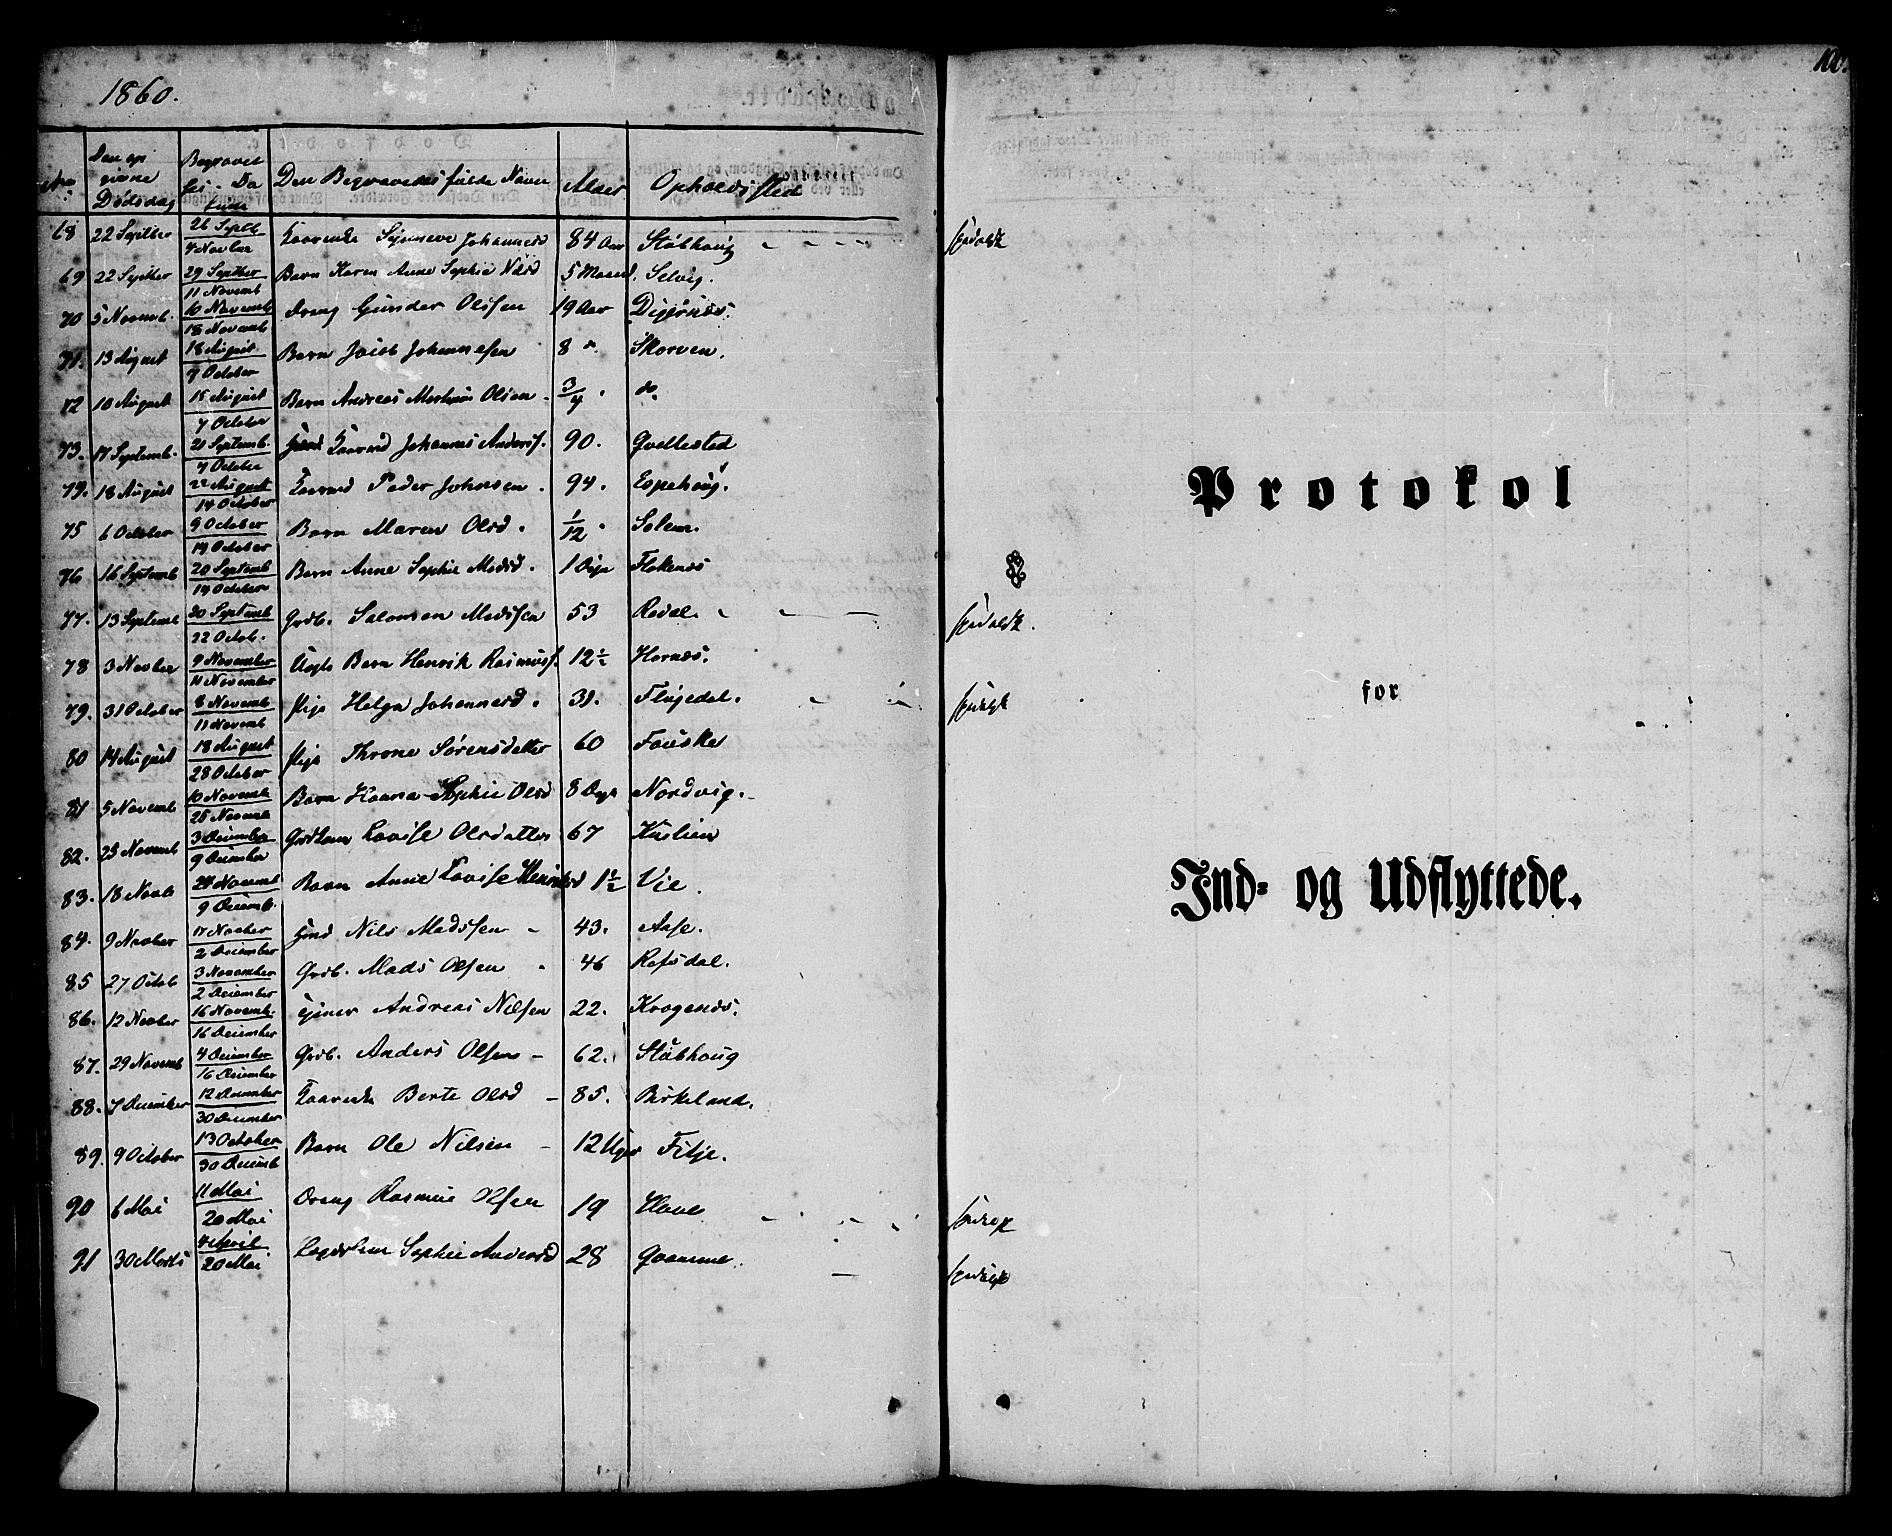 1860.
100.
No. Den opgivne Dødsdag Begravelses-Da Den Begravedes fulde Navn Alder Opholdssted
68 22 Septber 26 Septb. 4 Novber Kaarenke Synneve Johannesd 84 Aar Støbhoug spedalsk
69 22 Septber 29 Septber 11 Novemb Barn Karen Anne Sophie Nilsd 5 Maaned. Selvig.
70 5 Novemb. 10 Novemb 18 Novemb Dreng Gunder Olssen 19 Aar Digernæs.
71. 13 August 18 August 7 October Barn Jacob Johannesen 8 " Skorven.
72 10 August 15 August 7 October Barn Andreas Olsen 3/4 " do
73. 17 Septemb. 21 Septemb. 7 October Kaarmd Johannes Anders. 90. Qvellestad
74. 18 August 22 August 14 October Kaarmd Peder Johnsen. 94. Espehoug.
75 6 October 9 October 14 October Barn Maren Olsd. 1/12 " Solem.
76 16 Septemb 20 Septemb 14 October Barn Anne Sophie Madsd. 1 Dag Flokenæs
77. 13 Septemb 20 Septemb 22 Octob. Grdb. Salomon Madssen 53 Redal. spedalsk.
78 3 Novber 9 November 11 November Barn Henrik Rasmuss. 12 1/2 Hornæs.
79. 31 October 8 Novemb 11 Novemb Pige Helga Johannesd. 31. Flugedal.
80 14 August 18 August 28 October Pige Throne Sørensdatter 60 Fauske
81 5 Novemb 10 Novemb 25 Novemb Barn Hanna Sophie Olsd 8 Dage Nordvig.
82. 25 Novemb 3 December 9 December Lovise Olsdatter 67 Huslien
83. 18 Novb 24 Novemb 9 Decemb. Barn Anne Lovise 1 1/2 Vie.
84. 9 Novber 17 Novber 2 December Nils Madssen 43. Aase.
85 27 Octob 3 November 2 December Grdb. Mads Olsen 46 Refsdal.
86. 12 Novber 16 Novemb. 16 December Andreas Nilsen 22. Krogenæs.
87. 29 Novemb 4 December 16 December Grdb. Anders Olsen 62. Støbhoug
88. 7 December 12 December 30 December Kaarenk Berte Olsd 85. Birkeland.
89. 9 October 13 October 30 Decemb Barn Ole Nilsen 12 Uger Fitje.
90 6 Mai 11 Mai 20 Mai Dreng Rasmus Olsen 19 Hove
91 30 Marts 4 April 20 Mai. Sophie Andersd 28 Qvamme.
Protokol
for
Ind- og Udflyttede.